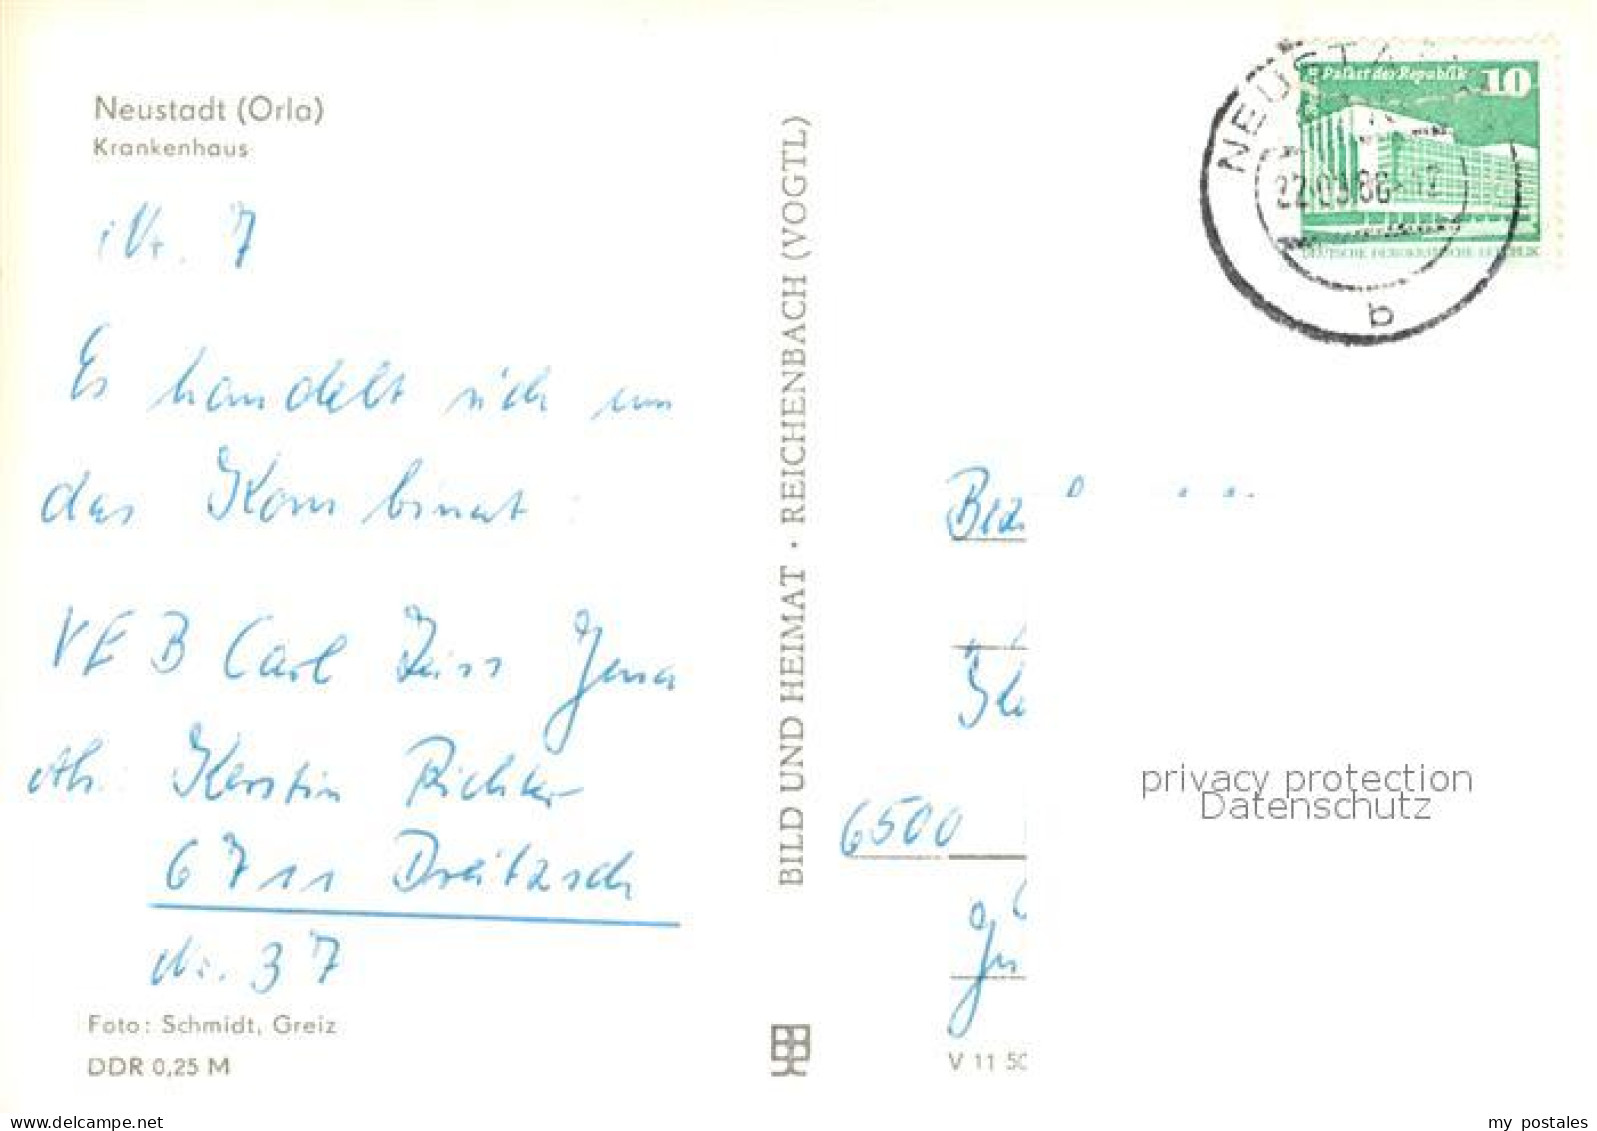 Neustadt (Orla)
Krankenhaus
Nr. 7
Es handelt sich um
das Kombinat:
VEB Carl Zeiss Jena
Ab.: Kerstin Richter
6711 Dreitzsch
Nr. 37
Foto: Schmidt, Greiz
DDR 0,25 M
BILD UND HEIMAT · REICHENBACH (VOGTL)
NEUSTA
b
Palast der Republik 10
DEUTSCHE DEMOKRATISCHE REPUBLIK
6500
V 11 50
privacy protection
Datenschutz
delcampe.net
my_postales